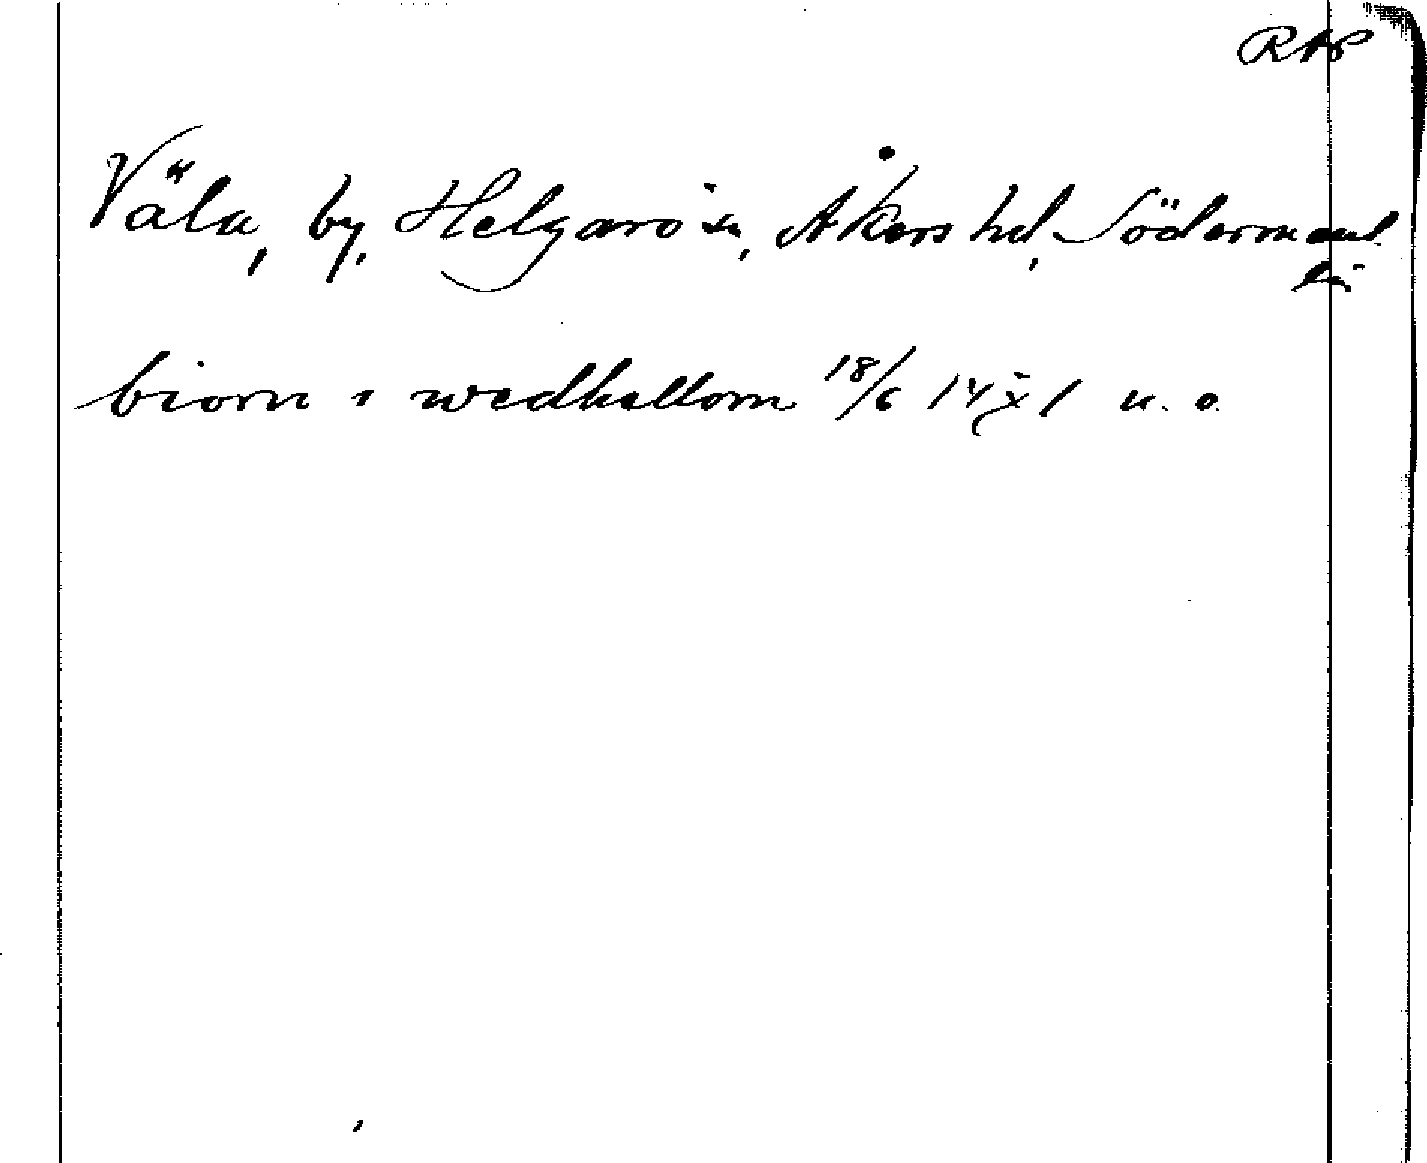 RAP
Väla, by, Helgarö sn, Åkers hd, Södermanl.
län
biorn i wedhellom 18/6 14 1 u. o.